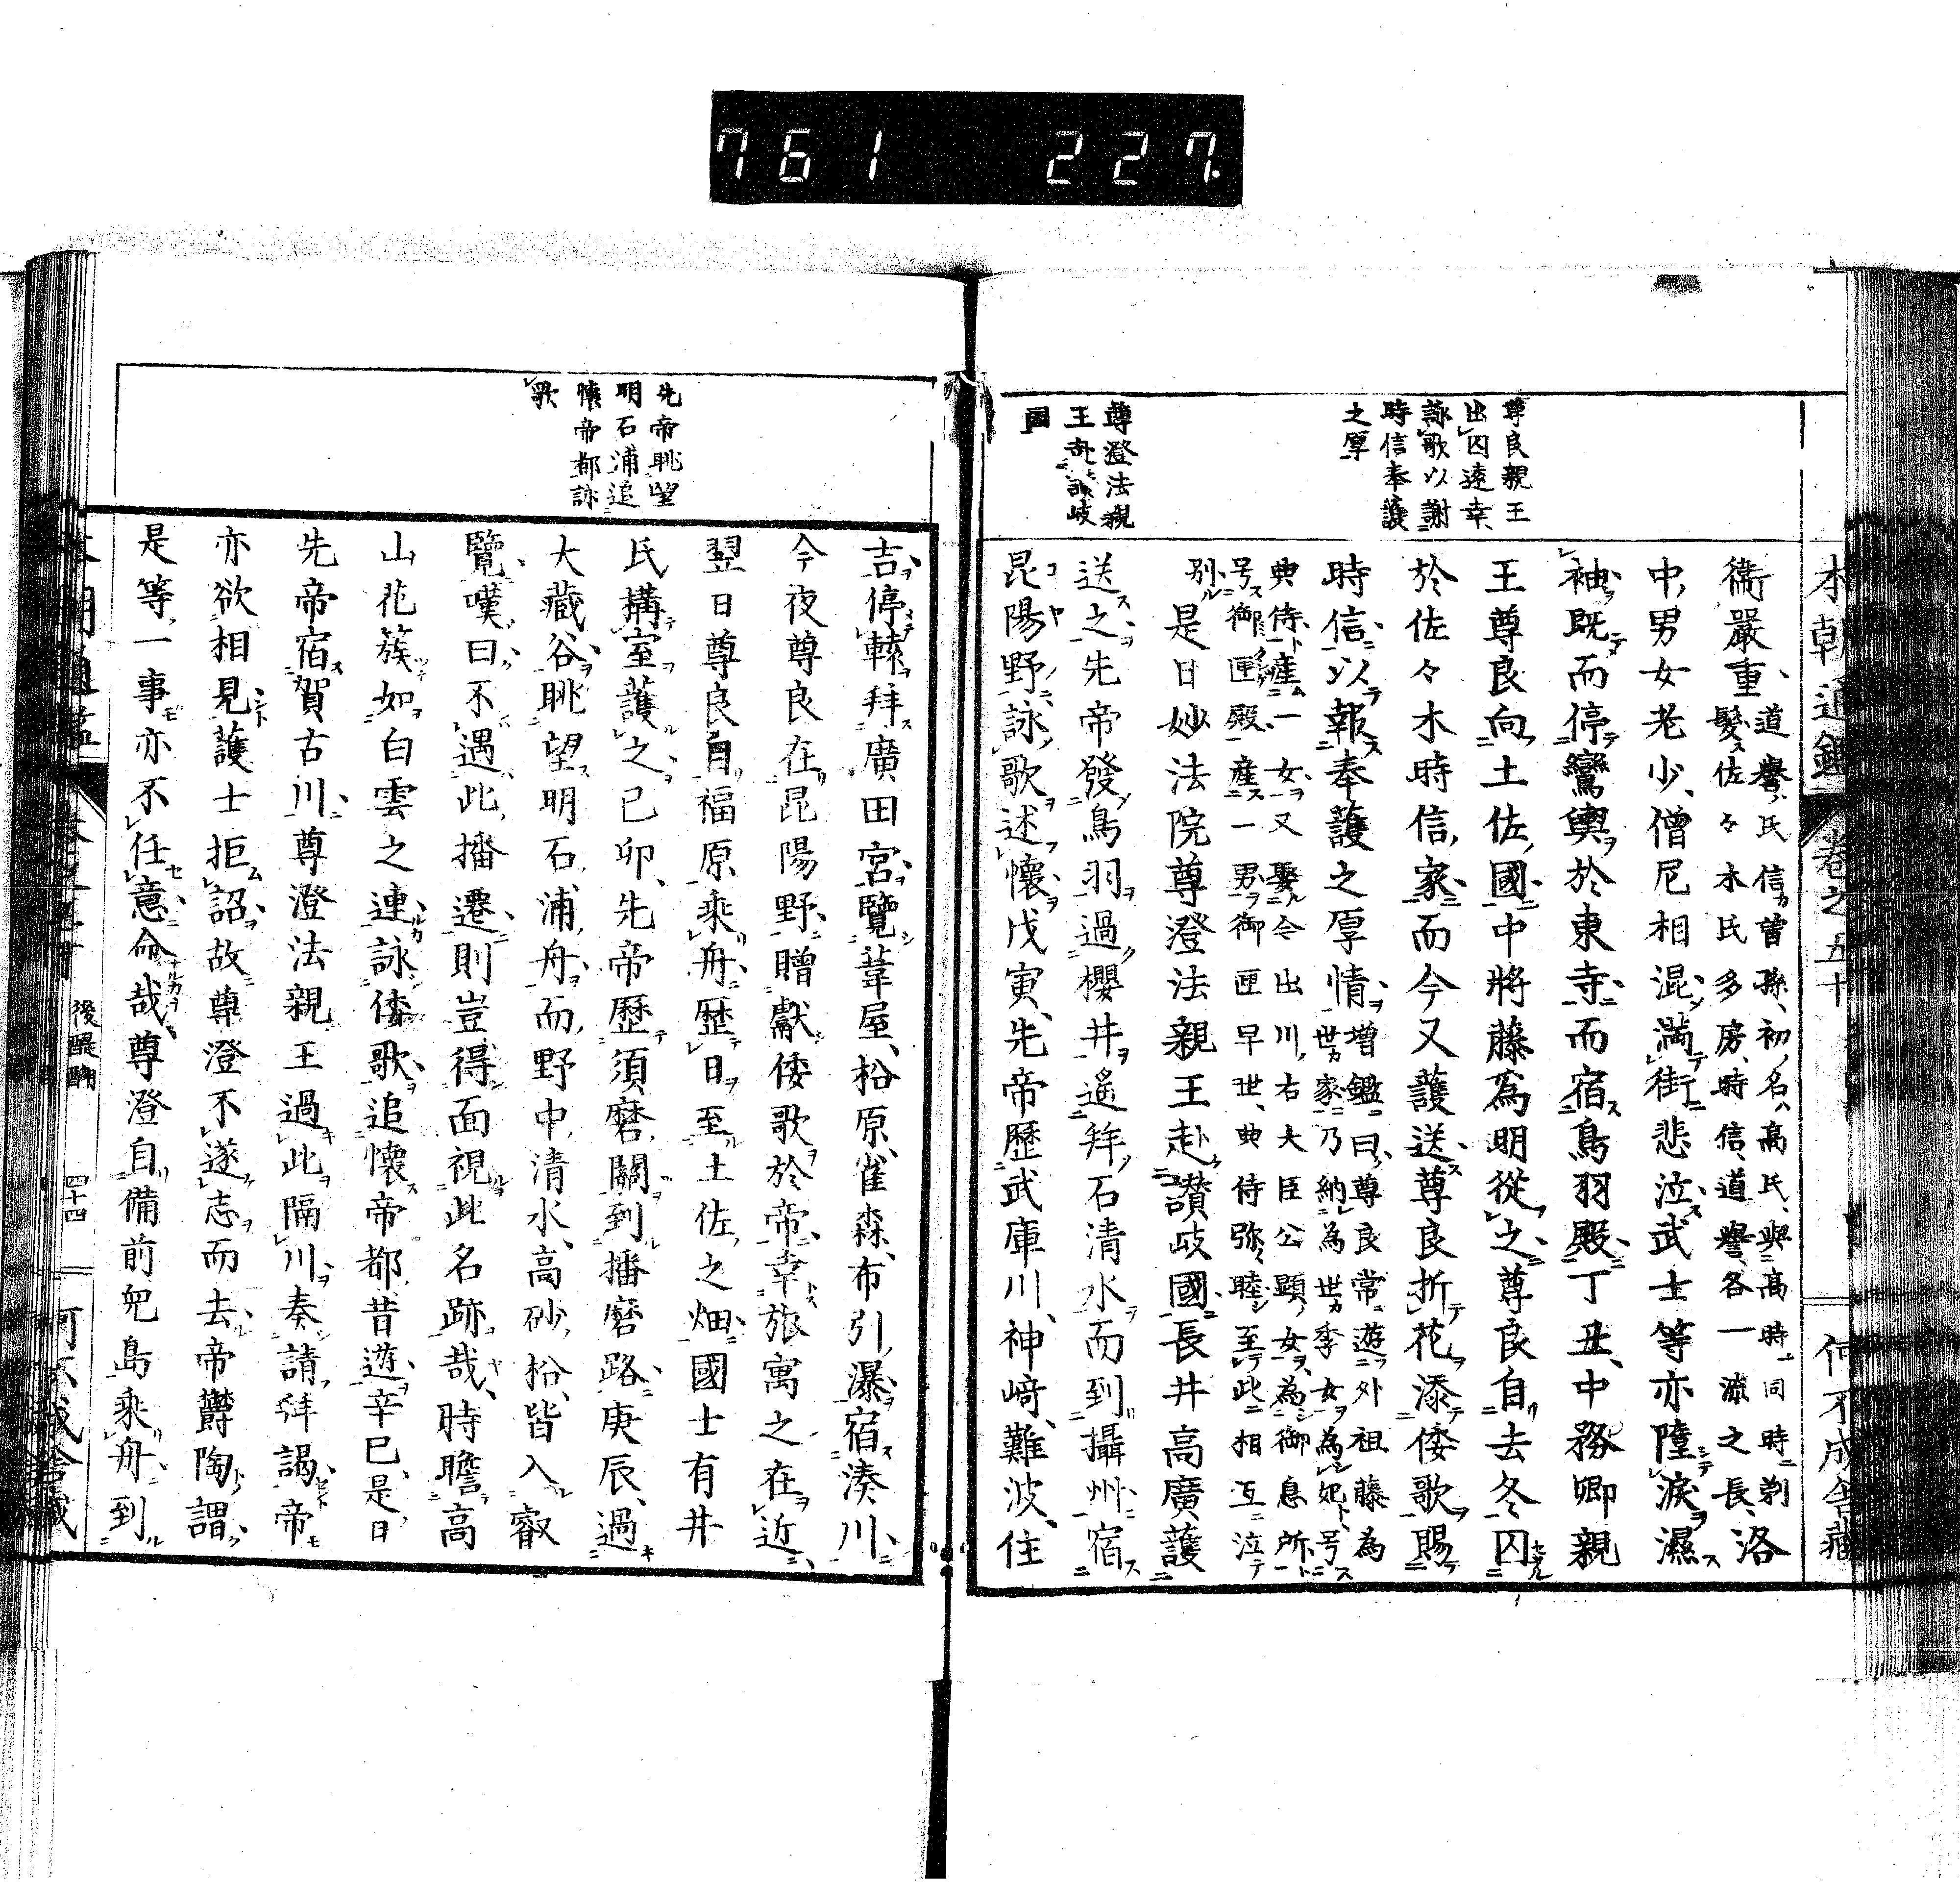 761 227.
本朝通鑑 卷之五十 何不成舍藏
尊良親王
出囚遠幸、
詠歌以謝
時信奉護
之厚
尊澄法親
王赴讃岐
國
衞嚴重、道譽、氏信曾孫、初名高氏、與高時同時剃髮、佐々木氏多房、時信、道譽、各一流之長、洛
中、男女老少、僧尼相混滿街悲泣、武士等亦墮淚濕
袖既而停鸞輿於東寺而宿鳥羽殿丁丑、中務卿親
王尊良向土佐國中將藤爲明從之尊良自去冬囚
於佐々木時信家而今又護送尊良折花添倭歌賜
時信以報奉護之厚情、增鑑曰、尊良常遊外祖藤為世家乃納為世季女為妃、号
典侍產一女又娶今出川右大臣公顯女為御息所
号御匣殿產一男御匣早世、典侍弥睦至此相互泣
別 是日妙法院尊澄法親王赴讃岐國長井高廣護
送之先帝發鳥羽過櫻井遙拜石清水而到攝州宿
昆陽野詠歌述懷戊寅、先帝歷武庫川、神﨑、難波、住
先帝眺望
明石浦追
懷帝都詠
歌
吉停轅拜廣田宮覽葦屋、松原、雀森、布引瀑宿湊川
今夜尊良在昆陽野贈獻倭歌於帝幸旅寓之在近
翌日尊良自福原乘舟歷日至土佐之畑國士有井
氏構室護之己卯、先帝歷須磨關到播磨路庚辰、過
大藏谷眺望明石浦舟而野中清水、高砂松、皆入叡
覽嘆曰不遇此播遷則豈得面視此名跡哉、時瞻高
山花簇如白雲之連詠倭歌追懷帝都昔遊辛巳、是日
先帝宿賀古川尊澄法親王過此隔川奏請拜謁帝
亦欲相見護士拒詔故尊澄不遂志而去帝欝陶謂
是等一事亦不任意命哉尊澄自備前兒島乘舟到
後醍醐 四十四